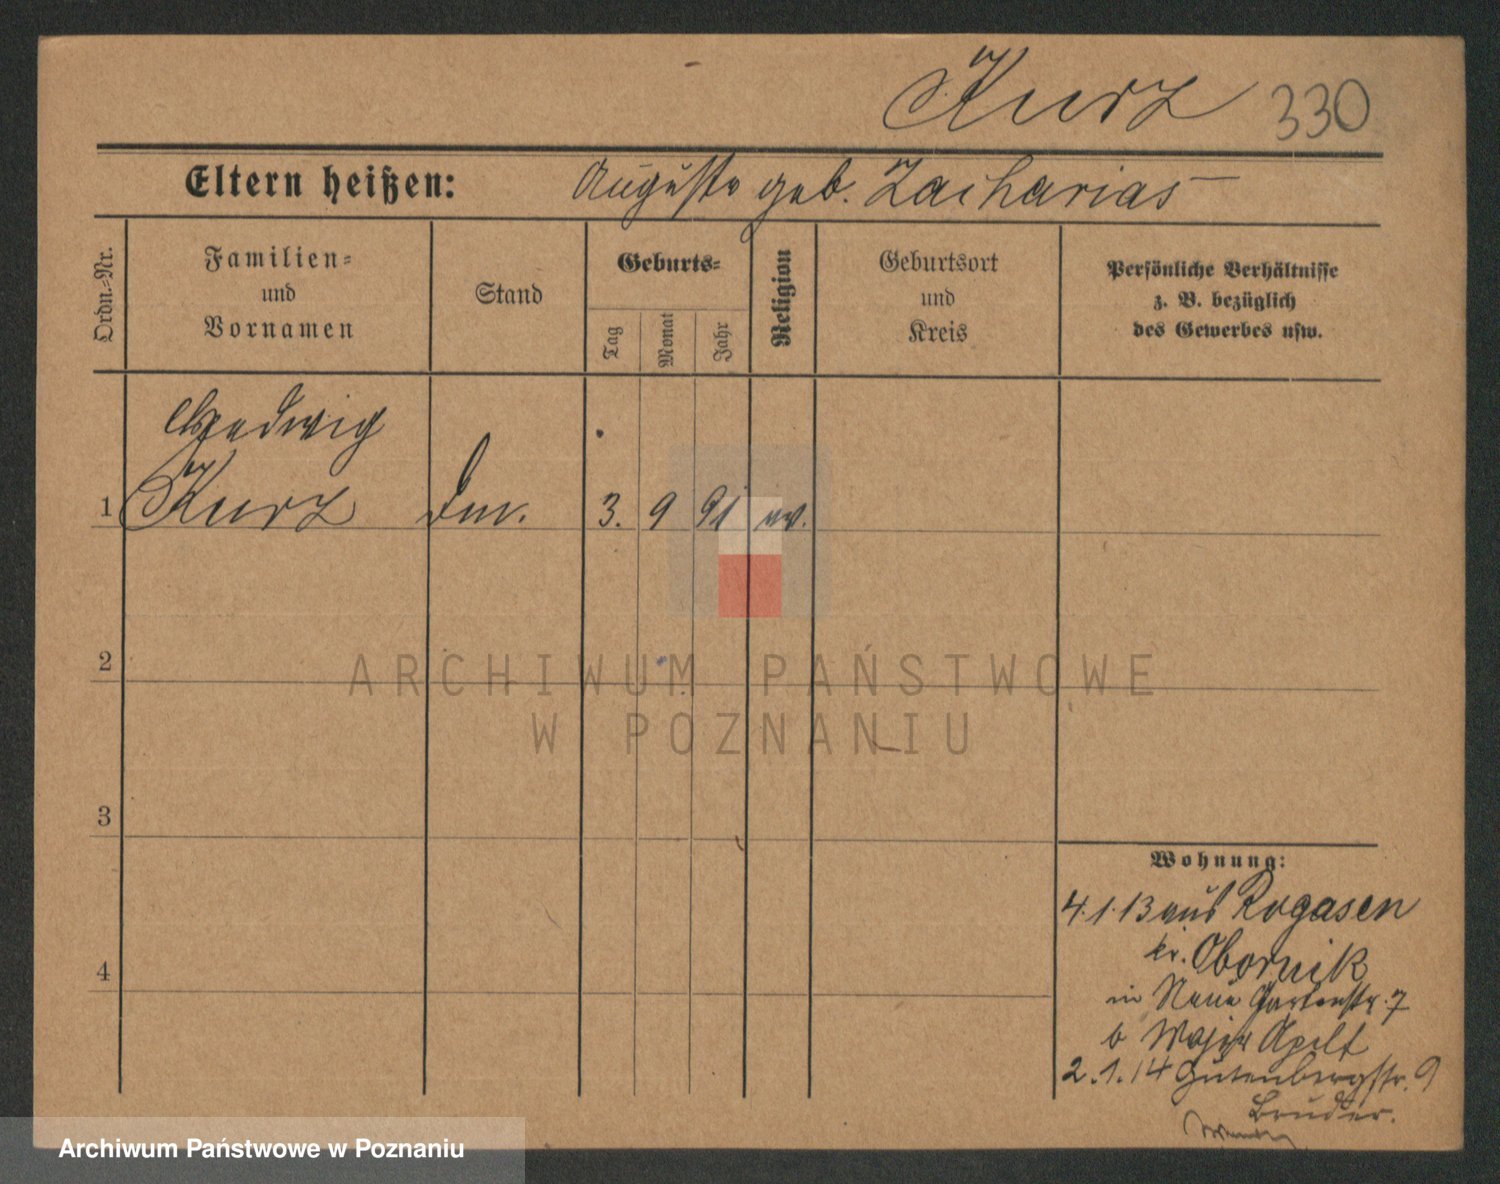 Kurz 330
Eltern heißen: Auguste geb. Zacharias
Ordn.-Nr.
Familien-
und
Vornamen
Stand
Geburts-
Tag
Monat
Jahr
Religion
Geburtsort
und
Kreis
Persönliche Verhältnisse
z. B. bezüglich
des Gewerbes usw.
Hedwig
1 Kurz 3. 9 91 ev.
2
3
4
ARCHIWUM PAŃSTWOWE
W POZNANIU
Wohnung:
4.1.13 aus Rogasen
Kr. Obornik
in Neue Gartenstr. 7
b Major Apelt
2.1.14 Gutenbergstr. 9
Bruder.
Archiwum Państwowe w Poznaniu